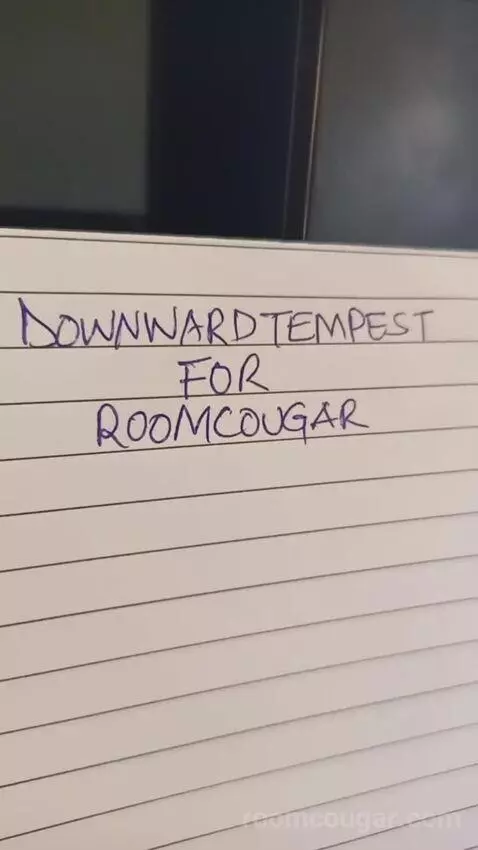 DOWNWARDTEMPEST
FOR
ROOMCOUGAR
roomcougar.com